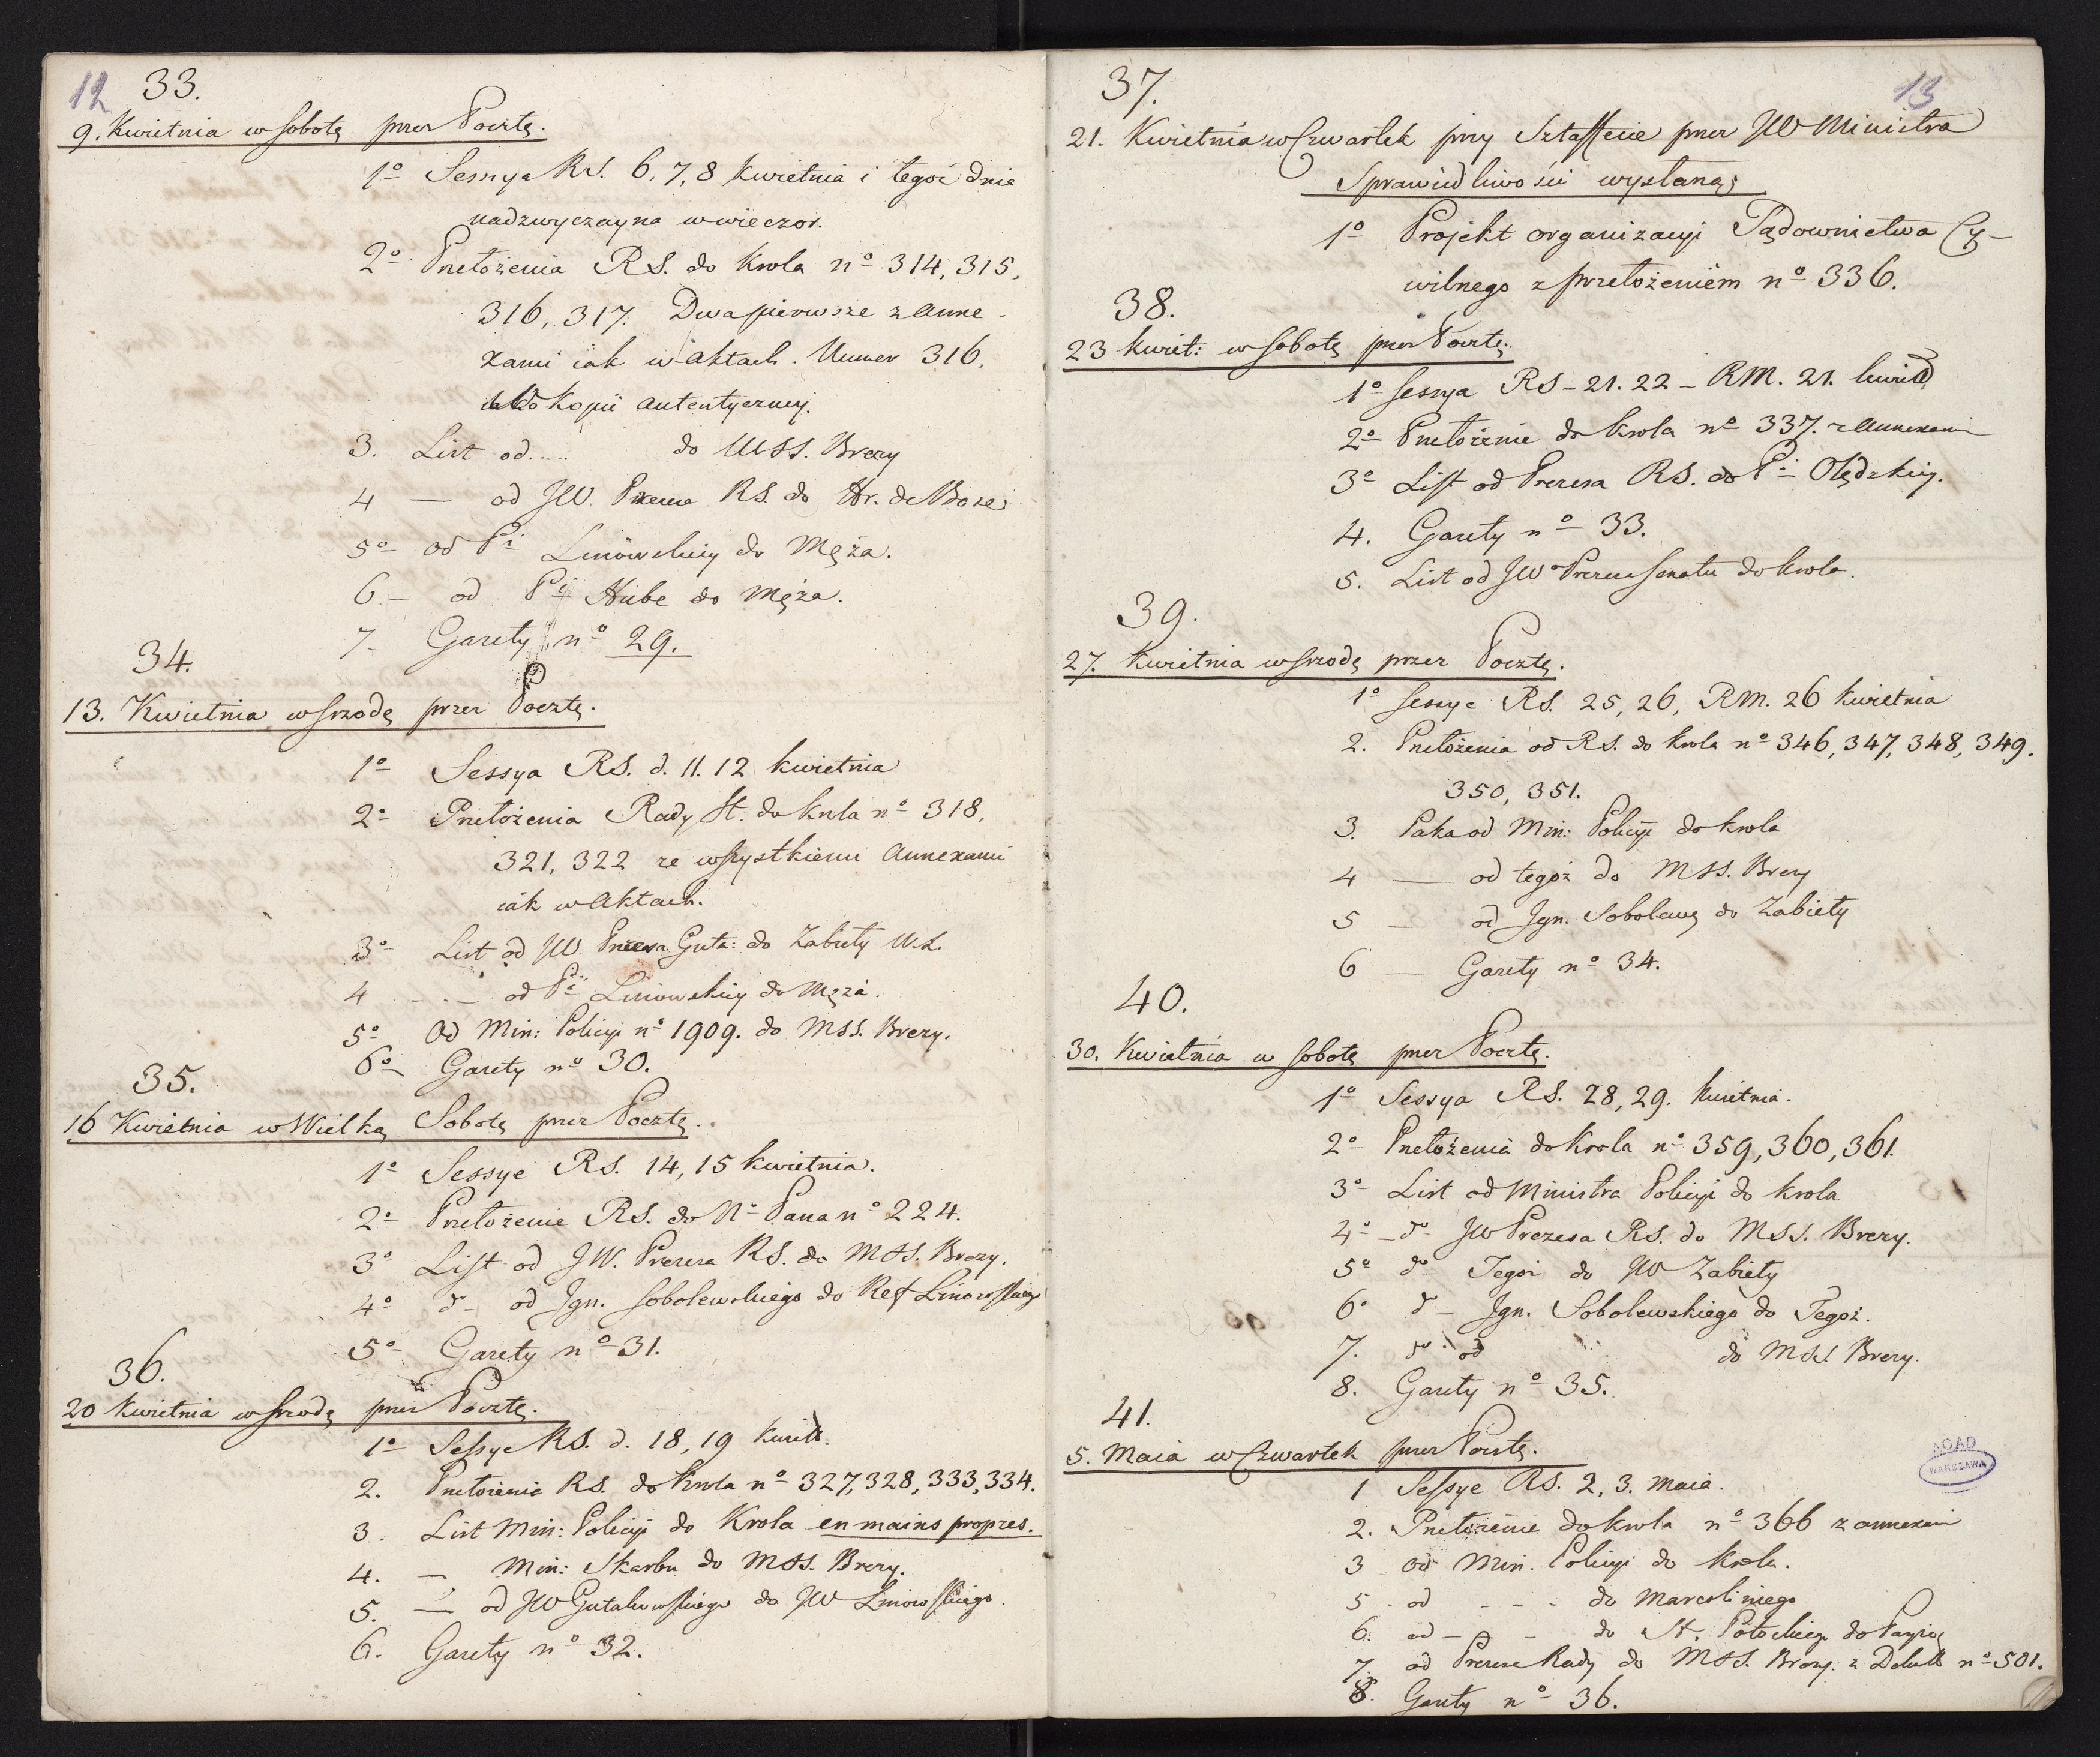 12 33.
9. Kwietnia w Sobotę przez Pocztę.
1º Sessya RS. 6, 7, 8 Kwietnia i tegoż dnia
nadzwyczayna w wieczor.
2º Przełożenia RS. do Krola nº 314, 315,
316, 317. Dwa pierwsze z anne-
xami iak w aktach. Numer 316.
kopii autentyczney.
3. List od.... do MSS. Brezy
4 — od JW. Prezesa RS. do Hr. de Bose
5º od Pi Linowskiey do Męża.
6 — od Pi Hube do Męża.
7. Gazety nº 29.
34.
13. Kwietnia w Srzodę przez Pocztę.
1º Sessya RS. d. 11. 12 Kwietnia
2º Przełożenia Rady St. do Krola nº 318,
321, 322 ze wszystkiemi annexami
iak w aktach.
3º List od JW Prezesa Guta: do Zabiełły
4 - - od Pi Linowskiey do Męża.
5º Od Min: Policyi nº 1909. do MSS. Brezy.
6º Gazety nº 30.
35.
16 Kwietnia w Wielką Sobotę przez Pocztę.
1º Sessye RS. 14, 15 Kwietnia.
2º Przełożenie RS. do Nº Pana nº 224.
3º List od JW. Prezesa RS. do MSS. Brezy.
4º dº od Jgn. Sobolewskiego do Ref Linowskiego
5º Gazety nº 31.
36.
20 Kwietnia w Srzodę przez Pocztę.
1º Sessye RS. d. 18, 19 Kwiet.
2. Przełożenia RS. do Krola nº 327, 328, 333, 334.
3. List Min: Policyi do Krola en mains propres.
4. — Min: Skarbu do MSS. Brezy.
5. — od JW Gutakowskiego do JW Linowskiego.
6. Gazety nº 32.
37. 13
21. Kwietnia w Czwartek przy Sztaffecie przez JW Ministra
Sprawiedliwości wysłaną;
1º Projekt organizacyi Sądownictwa Cy-
wilnego z przełożeniem nº 336.
38.
23 Kwiet: w Sobotę przez Pocztę.
1º Sessya RS - 21. 22 - RM. 21. Kwiet
2º Przełożenie do Krola nº 337. z annexami
3º List od Prezesa RS. do Pi Olędzkiey.
4. Gazety nº 33.
5. List od JW Prezesa Senatu do Krola.
39.
27. Kwietnia w Srzodę przez Pocztę.
1º Sessye RS. 25, 26, RM. 26 Kwietnia
2. Przełożenia od RS. do Krola nº 346, 347, 348, 349.
350, 351.
3. Paka od Min: Policyi do Krola
4 — od tegoż do MSS. Brezy
5 — od Jgn. Sobolews do Zabiełły
6 — Gazety nº 34.
40.
30. Kwietnia w Sobotę przez Pocztę.
1º Sessya RS. 28, 29. Kwietnia.
2º Przełożenia do Krola nº 359, 360, 361.
3º List od Ministra Policyi do Krola
4º - dº JW Prezesa RS. do MSS. Brezy.
5º dº Tegoż do JW Zabiełły
6º dº Jgn. Sobolewskiego do Tegoż.
7. dº od do MSS Brezy.
8. Gazety nº 35.
41.
5. Maia w Czwartek przez Pocztę.
1 Sessye RS. 2, 3. Maia.
2. Przełożenie do Krola nº 366 z annexami
3 od Min. Policyi do Krola.
5 - od - - - do Marcoliniego
6. od - - - do St. Potockiego do Paryża
7. od Prezesa Rady do MSS. Brezy. z nº 501.
8. Gazety nº 36.
AGAD
WARSZAWA